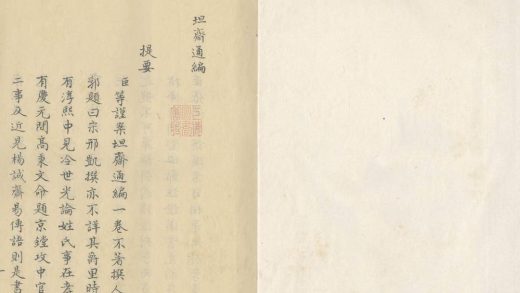 坦齋通編
提要
臣等謹案坦齋通編一卷不著撰人
郛題曰宗邢凱撰亦不詳其爵里時
有淳熙中見冷世光論姓氏事在孝
有慶元間高秉文命題京鏜攻中官
二事及近見楊誠齋易傳語則是書